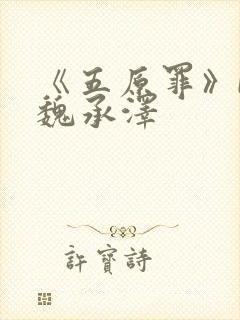 《五原罪》
魏承澤
許寶詩